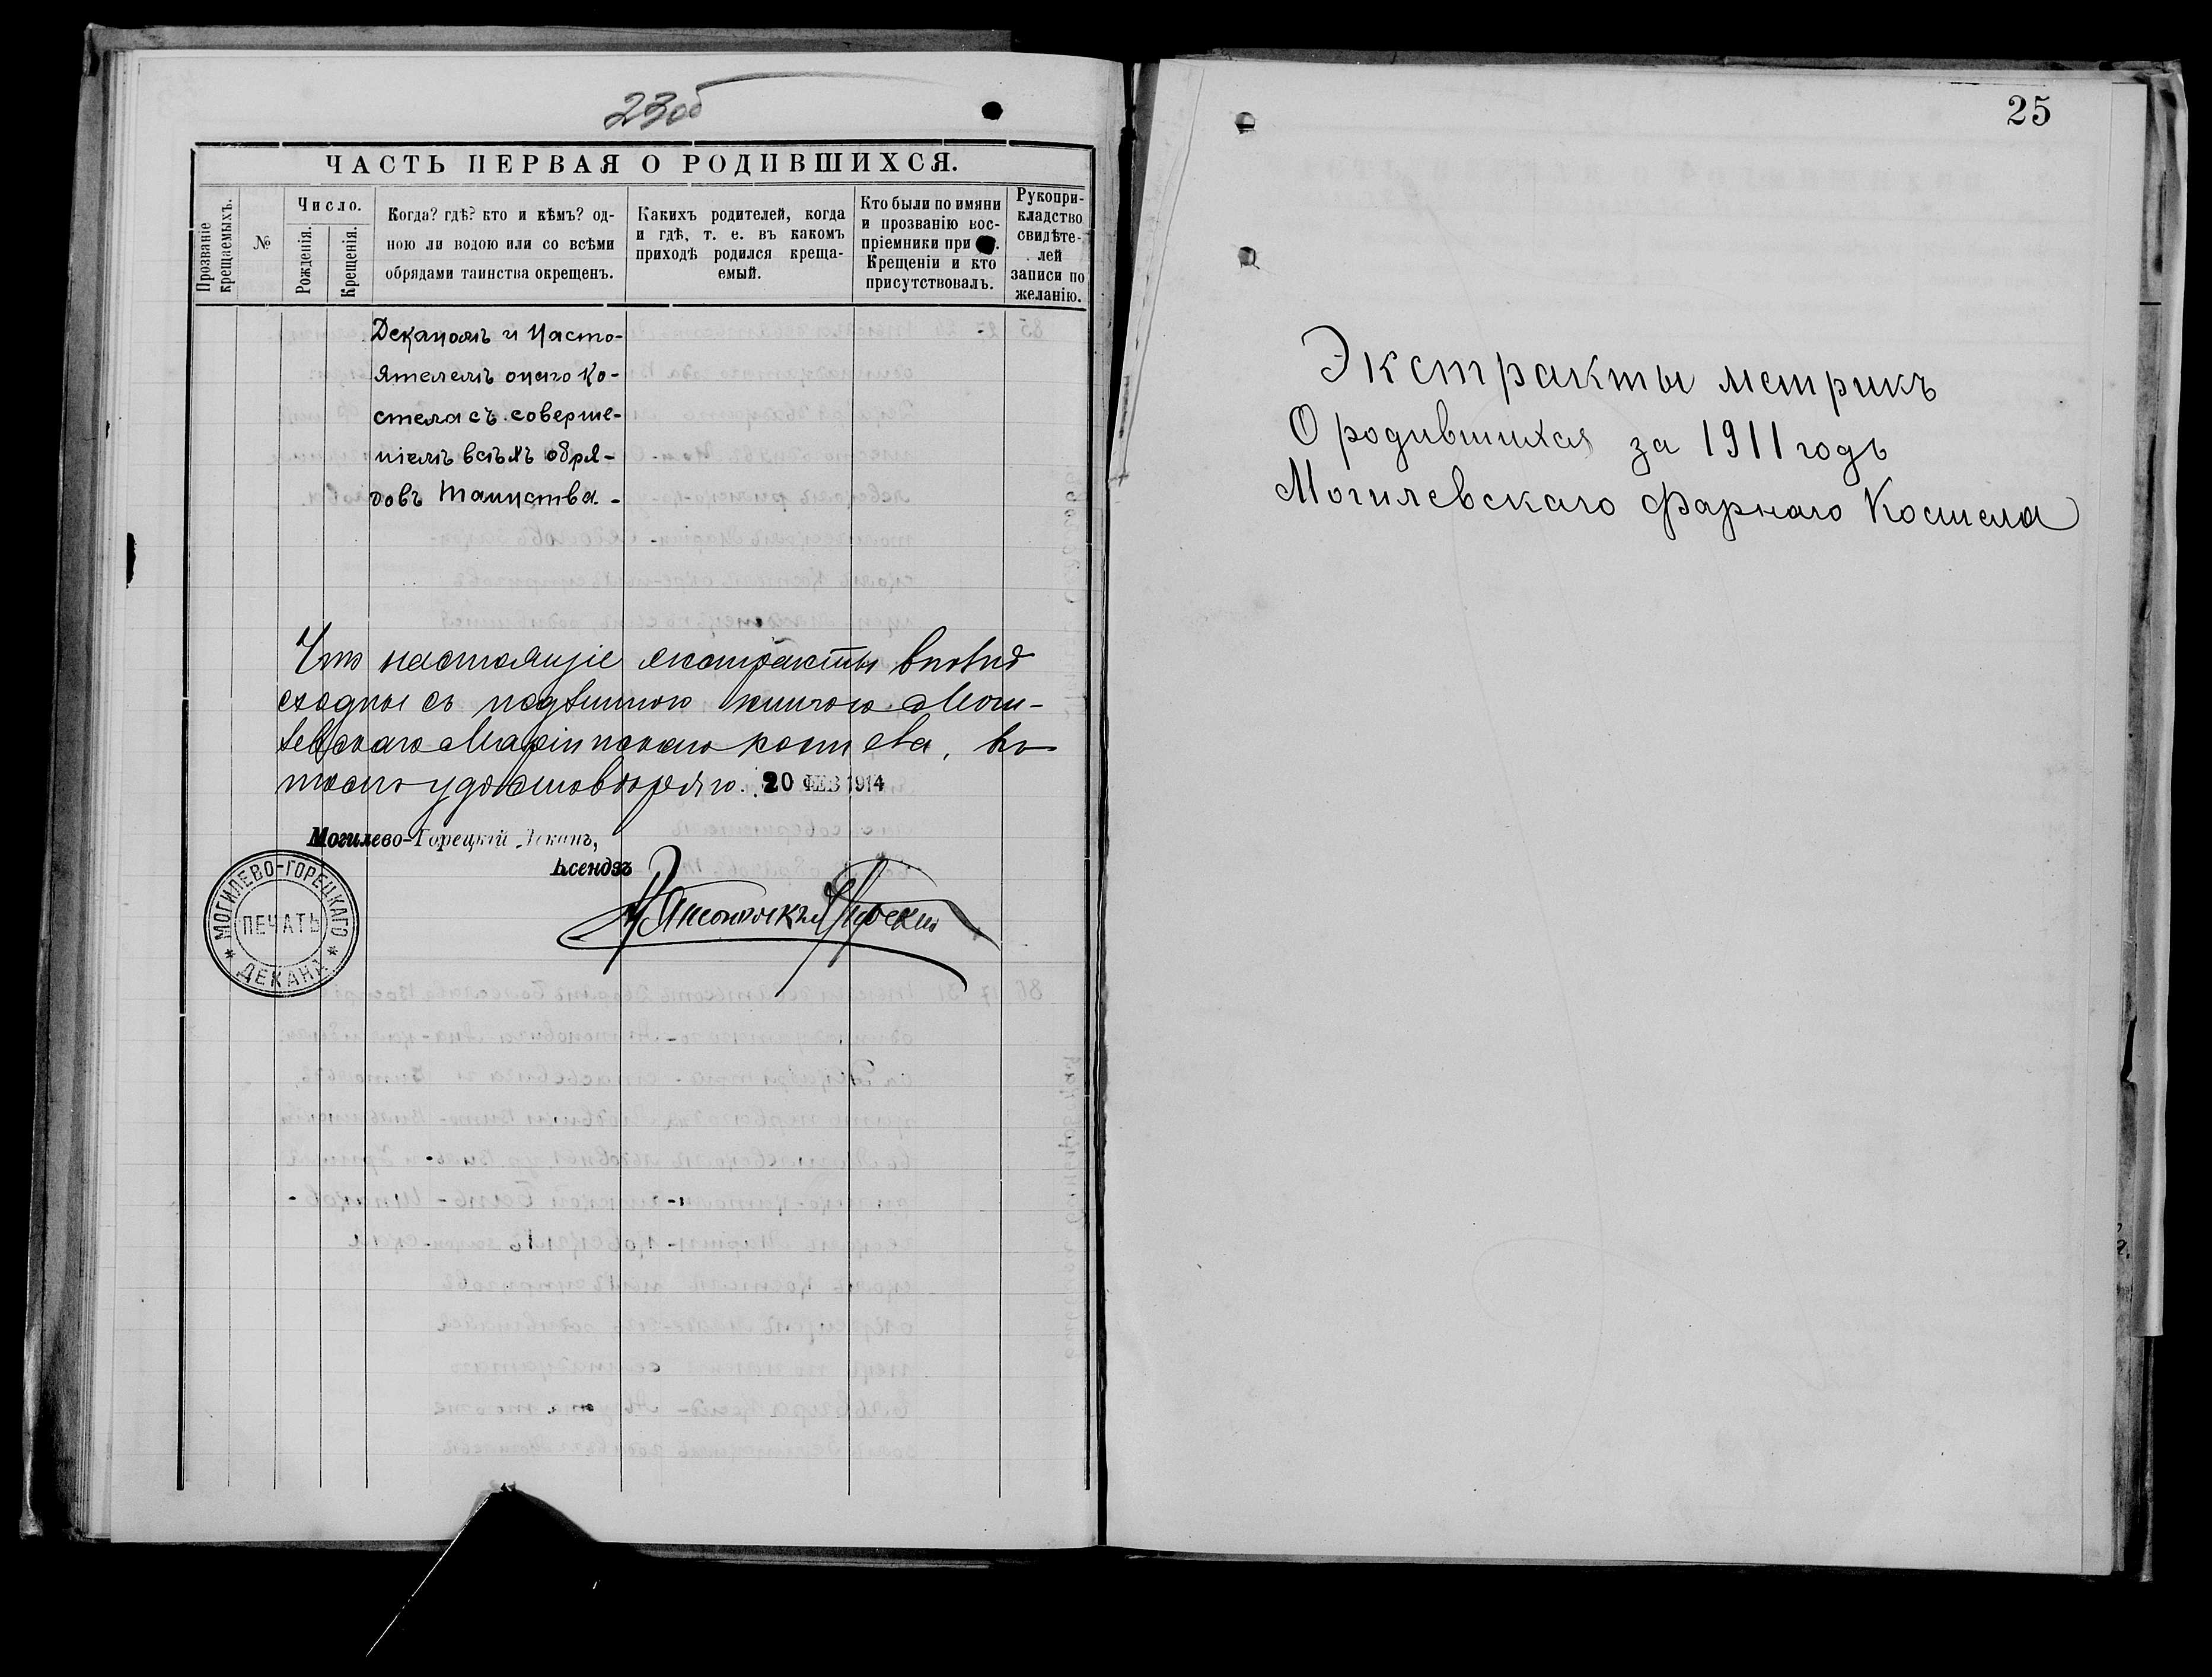 23об
ЧАСТЬ ПЕРВАЯ О РОДИВШИХСЯ.
Прозваніе крещаемыхъ.
№
Число.
Рожденія.
Крещенія.
Когда? гдѣ? кто и кѣмъ? од-
ною ли водою или со всѣми
обрядами таинства окрещенъ.
Какихъ родителей, когда
и гдѣ, т. е. въ какомъ
приходѣ родился креща-
емый.
Кто были по имяни
и прозванію вос-
пріемники при
Крещеніи и кто
присутствовалъ.
Рукопри-
кладство
свидѣте-
лей
записи по
желанію.
Деканомъ и Насто-
ятелемъ онаго Ко-
стела съ соверше-
ніемъ всѣхъ обря-
довъ Таинства.-
Что настоящіе экстракты вполнѣ
сходны съ подлинною книгою Моги-
левскаго Маріинскаго костела, въ
томъ удостовѣряю. 20 ФЕВ 1914
Могилево-Горецкій Деканъ,
Ксендзъ
МОГИЛЕВО-ГОРЕЦКАГО
ПЕЧАТЬ
* ДЕКАНА *
25
Экстракты метрикъ
О родившихся за 1911 годъ
Могилевскаго Фарнаго Костела